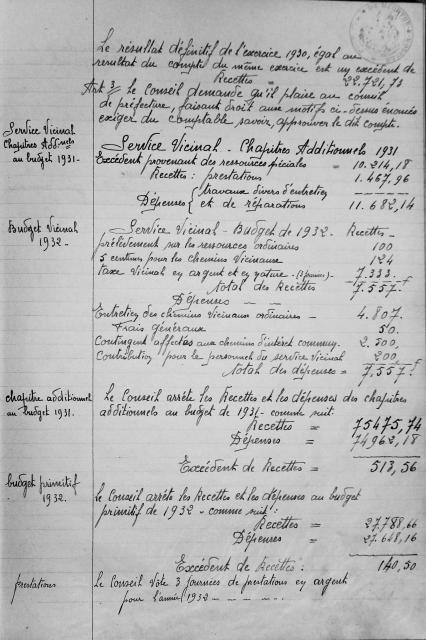 Le résultat définitif de l'exercice 1930, égal au
résultat du compte du même exercice est un excédent de
Recettes = 22.721,73
Art 3 // Le Conseil demande qu'il plaise au conseil
de préfecture, faisant droit aux motifs ci-dessus énoncés
exiger du comptable savoir, approuver le dit compte.
Service Vicinal
Chapitres Additnels
au budget 1931-
Service Vicinal - Chapitres Additionnels 1931
Excédent provenant des ressources spéciales = 10.214,18
Recettes : prestations 1.467,96
Dépenses { travaux divers d'entretien
et de réparations 11.682,14
Budget Vicinal
1932 -
Service Vicinal - Budget de 1932 - Recettes -
prélèvement sur les ressources ordinaires 100
5 centimes pour les chemins Vicinaux 124
taxe Vicinal en argent et en nature - (3 journées) - 7.333.
total des Recettes 7.557 f
Dépenses - -
Entretien des chemins Vicinaux ordinaires - 4.807.
Frais généraux 50.
Contingent affectés aux chemins d'intérêt commun. 2.500,
Contribution pour le personnel du service Vicinal 200
total des dépenses = 7.557 f
chapitre additionnel
au budget 1931.
Le Conseil arrête les Recettes et les dépenses des chapitres
additionnels au budget de 1931 - comme suit
Recettes = 75475,74
Dépenses = 74962,18
Excédent de Recettes = 513,56
budget primitif
1932.
Le Conseil arrêt les Recettes et les dépenses au budget
primitif de 1932 - comme suit :
Recettes = 27.788,66
Dépenses = 27.648,16
Excédent de Recettes : 140,50
prestations
Le Conseil Vote 3 journées de prestations en argent
pour l'année 1932 - - - - -.